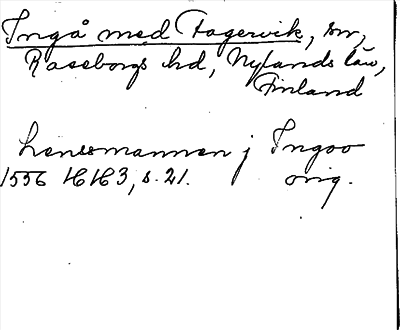 Ingå med Fagervik, sn,
Raseborgs hd, Nylands län,
Finland
Lensmannen j Ingoo
1556 HH3, s. 21. orig.